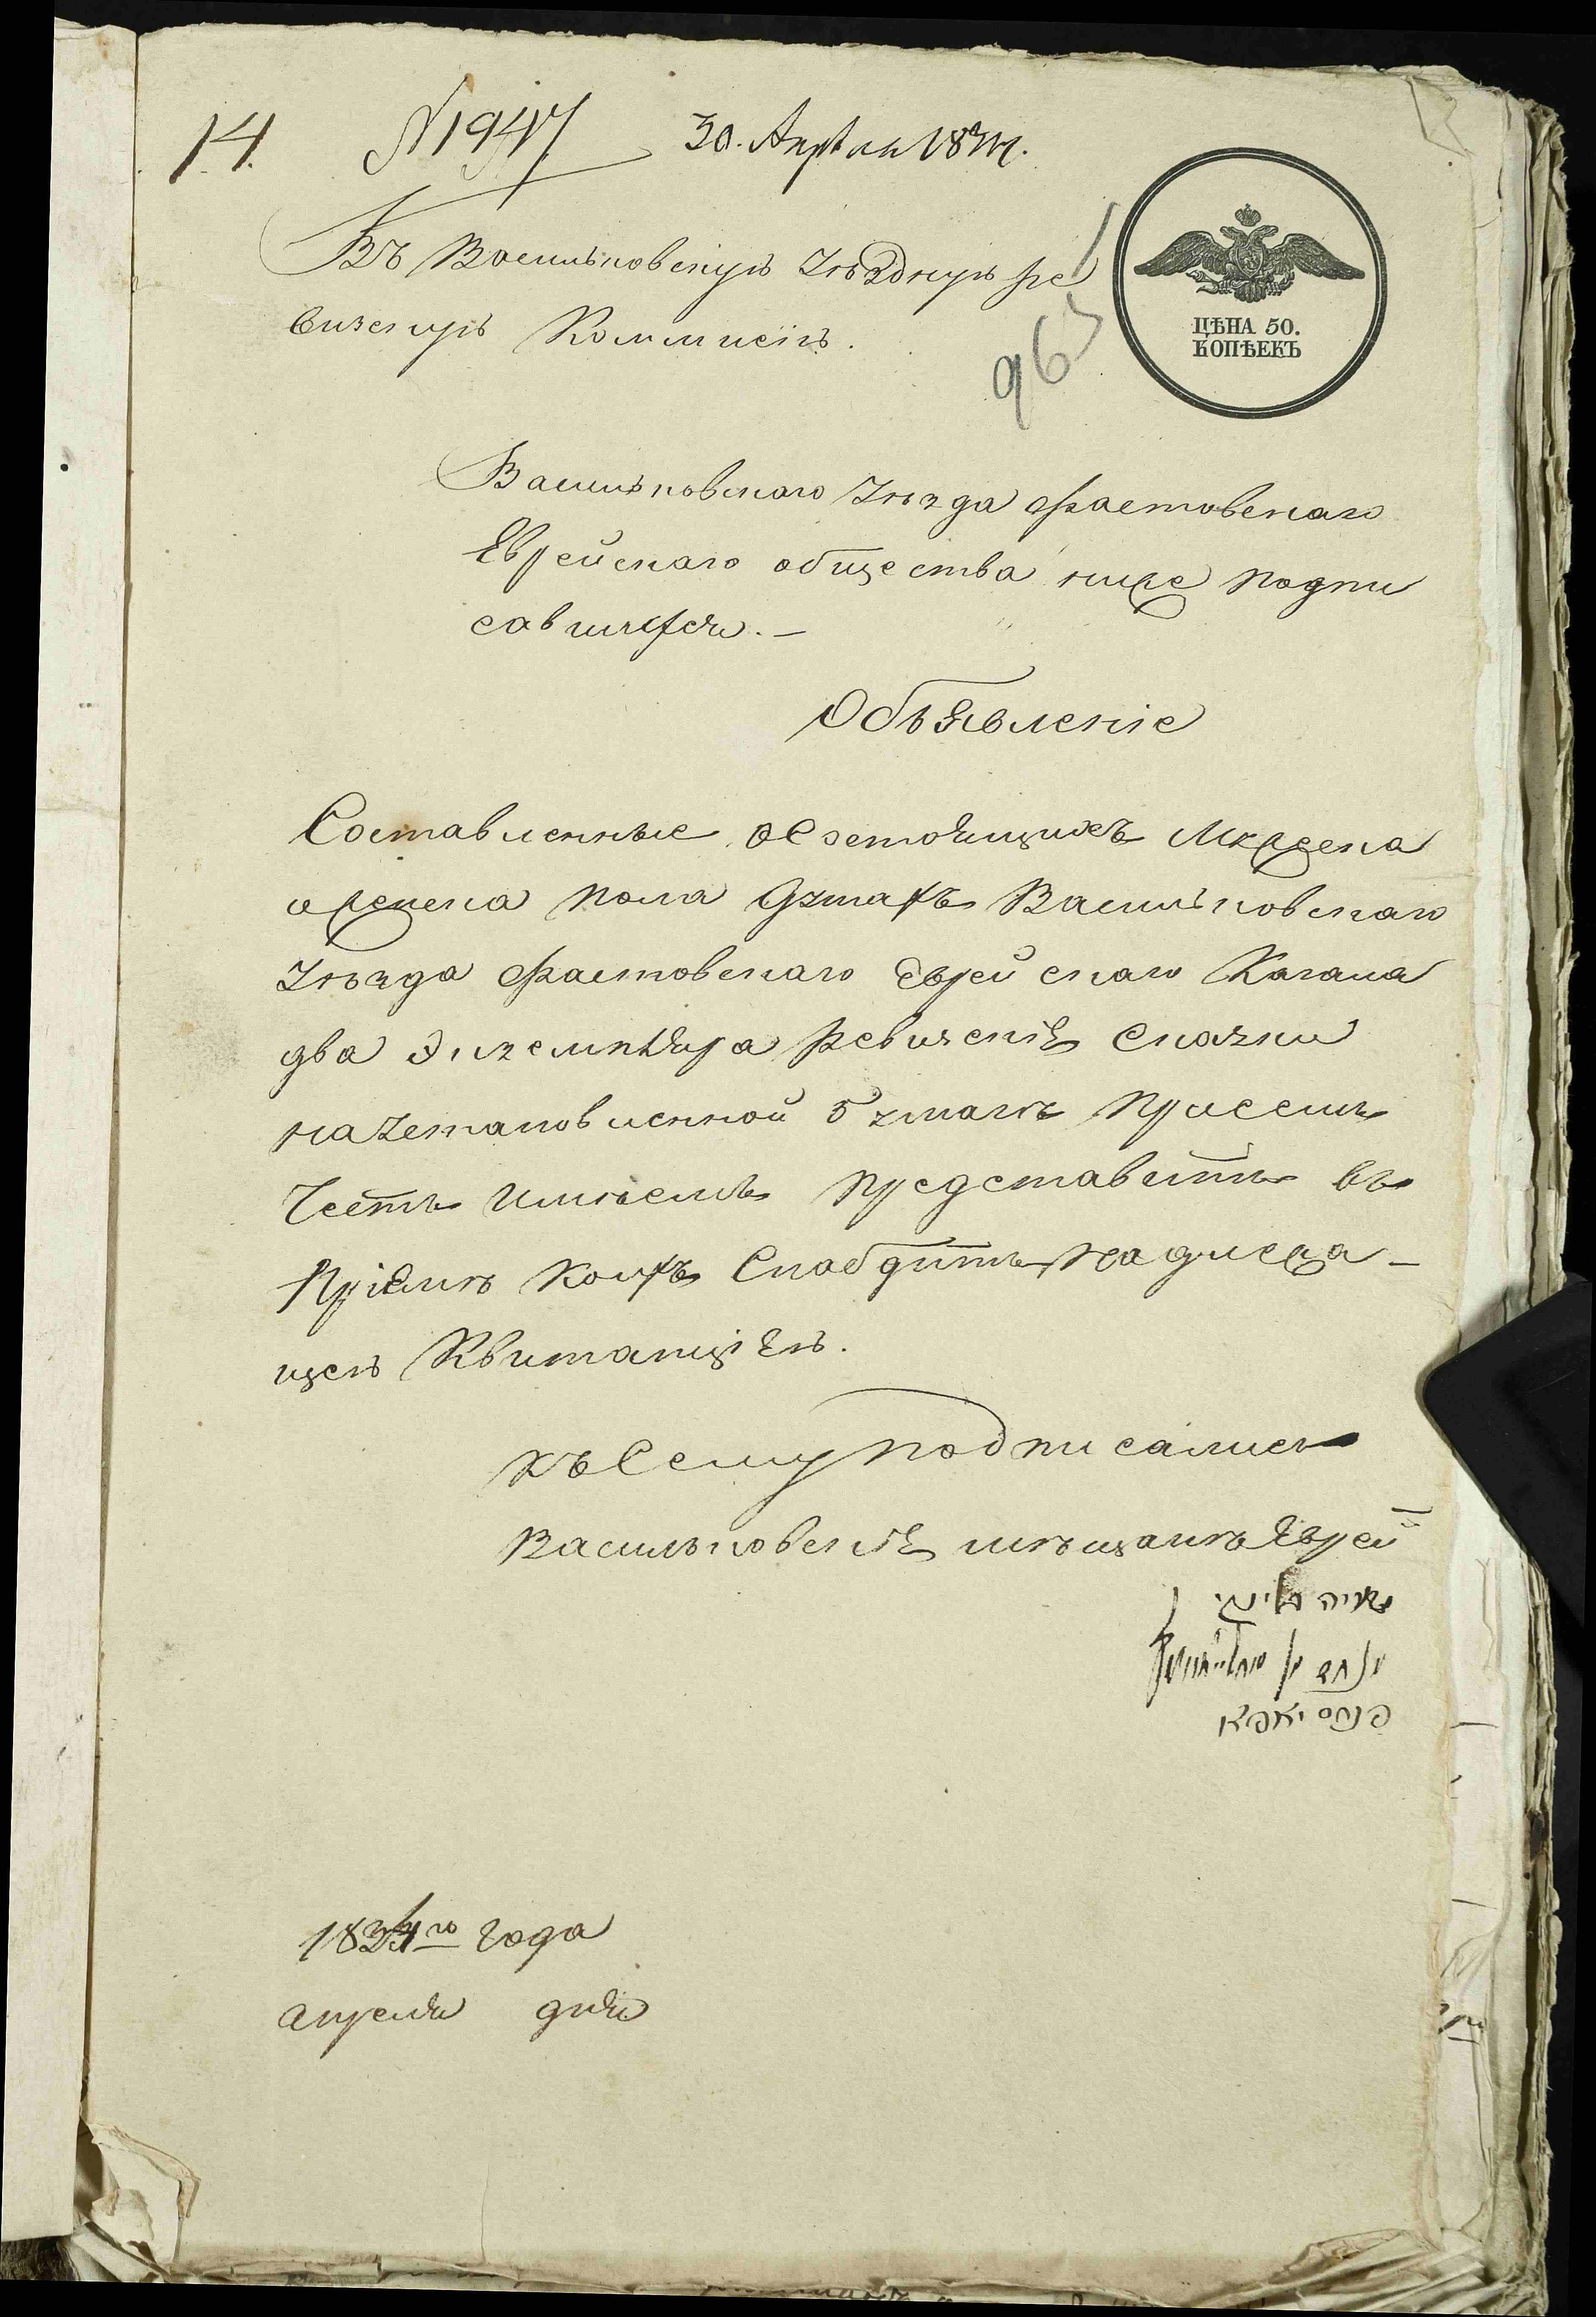 14. N 1947 30. Апреля 1834.
Въ Васильковскую Уѣздную ре
визскую Коммисію.
965
ЦѢНА 50.
КОПѢЕКЪ
Васильковскаго Уѣзда Фастовскаго
Еврейскаго общества ниже подпи
савшихся.—
Объявленіе
Составленные о состоящихъ Мужеска
и женска пола душахъ Васильковскаго
Уѣзда Фастовскаго Еврейскаго Кагала
два Экземпляра Ревизскія Сказки
на установленной бумагѣ при семъ
Честь имѣемъ представить въ
Пріемѣ коихъ Снабдить надлежа-
щею Квитанціею.
къ Сему подписались
Васильковскія мѣщанѣ Евреи
פנחס יאפא
1834го года
апреля дня